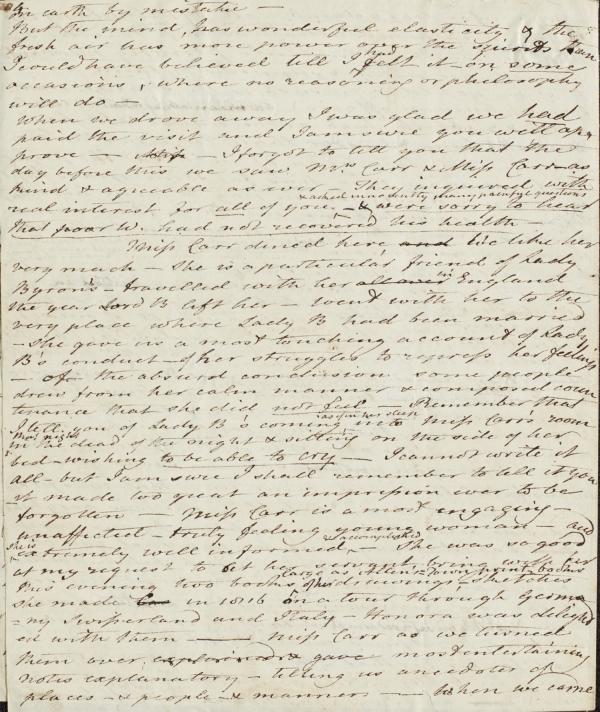 on earth by mistake —
But the mind has wonderful elasticity & the
fresh air has more power over the spirits than
I could have believed till I had felt it — on some
occasions, where no reasoning or philosophy
will do —
When we drove away I was glad we had
paid the visit and I am sure you will ap=
prove — I forgot to tell you that the
day before this we saw Mrs. Carr & Miss Carr — as
kind & agreeable as ever — They inquired with
& asked me a hasty many painful questions
real interest for all of you — & were sorry to hear
that poor W. had not recovered his health —
Miss Carr dined here and We like her
very much — She is a particular friend of Lady
Byron's — travelled with her all over in England
the year Lord B left her — went with her to the
very place where Lady B had been married
— She gave us a most touching account of Lady
B's conduct — of her struggles to repress her feelings
— of the absurd conclusions some people
drew from her calm manner & composed coun
tenance that she did not feel — Remember that
I tell you of Lady B's coming as if in her sleep into Miss Carr's room
most nights
in the dead of the night & sitting on the side of her
bed — wishing to be able to cry — I cannot write it
all — but I am sure I shall remember to tell it you
it made too great an impression ever to be
forgotten — Miss Carr is a most engaging —
unaffected — truly feeling young woman — and
she is extremely well informed & accomplished — She was so good
at my request to let her servants bring with her
this evening two books of her drawings, sketches
she made in 1816 on a tour through Germa
=ny Switzerland and Italy — Honora was delight
ed with them — Miss Carr as we turned
them over, explained & gave most entertaining
notes explanatory — telling us anecdotes of
places — & people — & manners — When we came